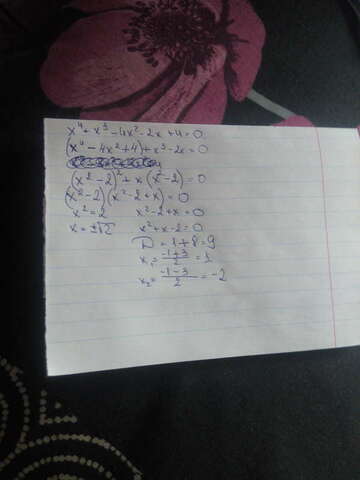 x⁴ + x³ - 4x² - 2x + 4 = 0
(x⁴ - 4x² + 4) + x³ - 2x = 0
(x² - 2)² + x(x² - 2) = 0
(x² - 2)(x² - 2 + x) = 0
x² = 2 x² - 2 + x = 0
x = ±√2 x² + x - 2 = 0
D = 1 + 8 = 9
x₁ = (-1+3)/2 = 1
x₂ = (-1-3)/2 = -2